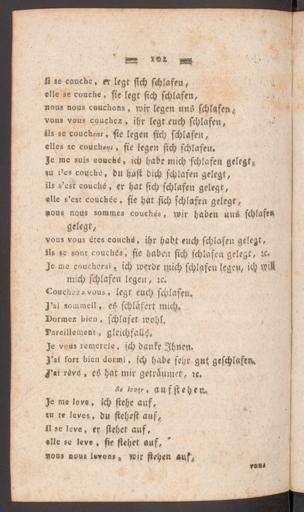 102
il se couche, er legt sich schlafen,
elle se couche, sie legt sich schlafen,
nous nous couchons, wir legen uns schlafen,
vous vous couchez, ihr legt euch schlafen,
ils se couchent, sie legen sich schlafen,
elles se couchent, sie legen sich schlafen.
Je me suis couché, ich habe mich schlafen gelegt,
tu t'es couché, du hast dich schlafen gelegt,
ils s'est couché, er hat sich schlafen gelegt,
elle s'est couchée, sie hat sich schlafen gelegt,
nous nous sommes couchés, wir haben uns schlafen
gelegt,
vous vous étes couché, ihr habt euch schlafen gelegt,
ils se sont couchés, sie haben sich schlafen gelegt, ꝛc.
Je me coucherai, ich werde mich schlafen legen, ich will
mich schlafen legen, ꝛc.
Couchez-vous, legt euch schlafen.
J'ai sommeil, es schläfert mich.
Dormez bien, schlafet wohl.
Pareillement, gleichfalls.
Je vous remercie, ich danke Ihnen.
J'ai fort bien dormi, ich habe sehr gut geschlafen.
J'ai rêvé, es hat mir geträumet, ꝛc.
Se lever, aufstehen.
Je me leve, ich stehe auf,
tu te leves, du stehest auf,
il se leve, er stehet auf,
elle se leve, sie stehet auf,
nous nous levons, wir stehen auf,
vous